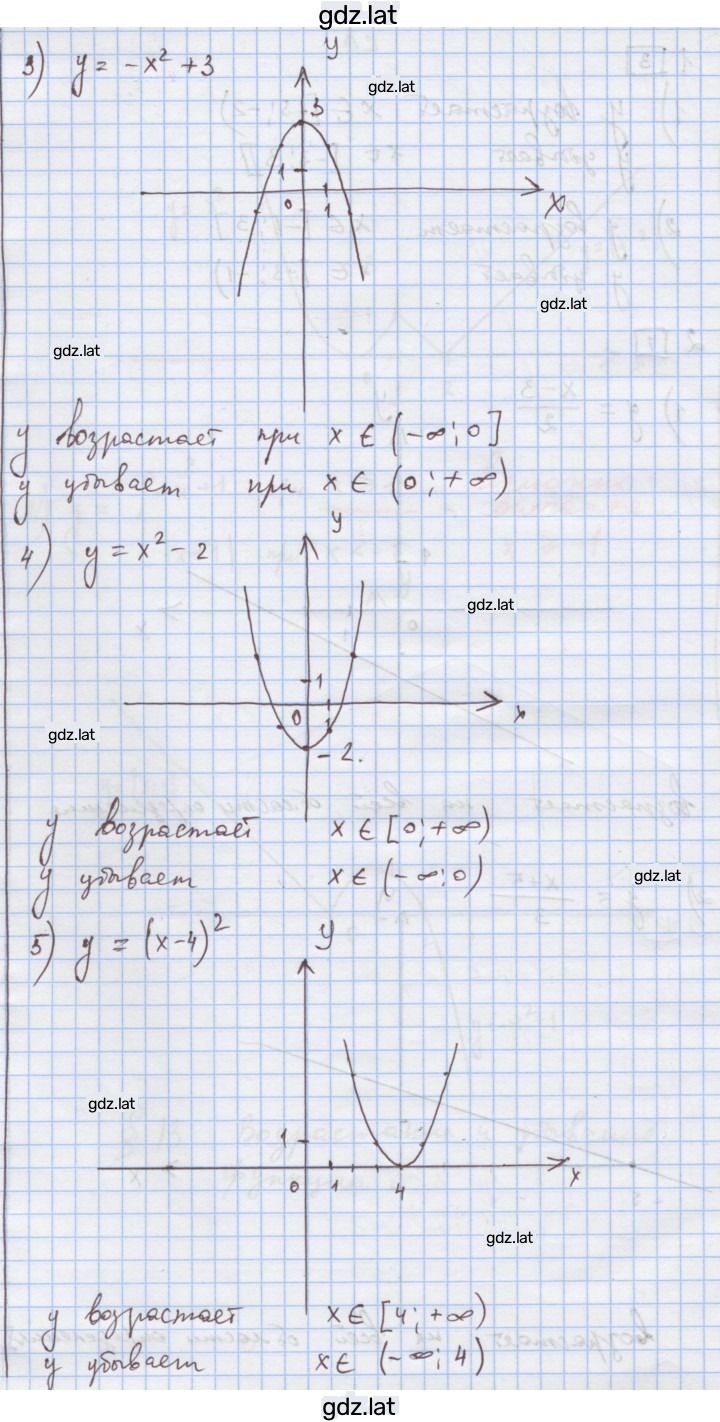 gdz.lat
3) y = -x² + 3
y
gdz.lat
3
1
0
1
x
gdz.lat
gdz.lat
y возрастает при x ∈ (-∞; 0]
y убывает при x ∈ (0; +∞)
4) y = x² - 2
y
gdz.lat
1
0
1
x
gdz.lat
-2.
y возрастает x ∈ [0; +∞)
y убывает x ∈ (-∞; 0)
gdz.lat
5) y = (x-4)²
y
gdz.lat
1
0
1
4
x
gdz.lat
y возрастает x ∈ [4; +∞)
y убывает x ∈ (-∞; 4)
gdz.lat